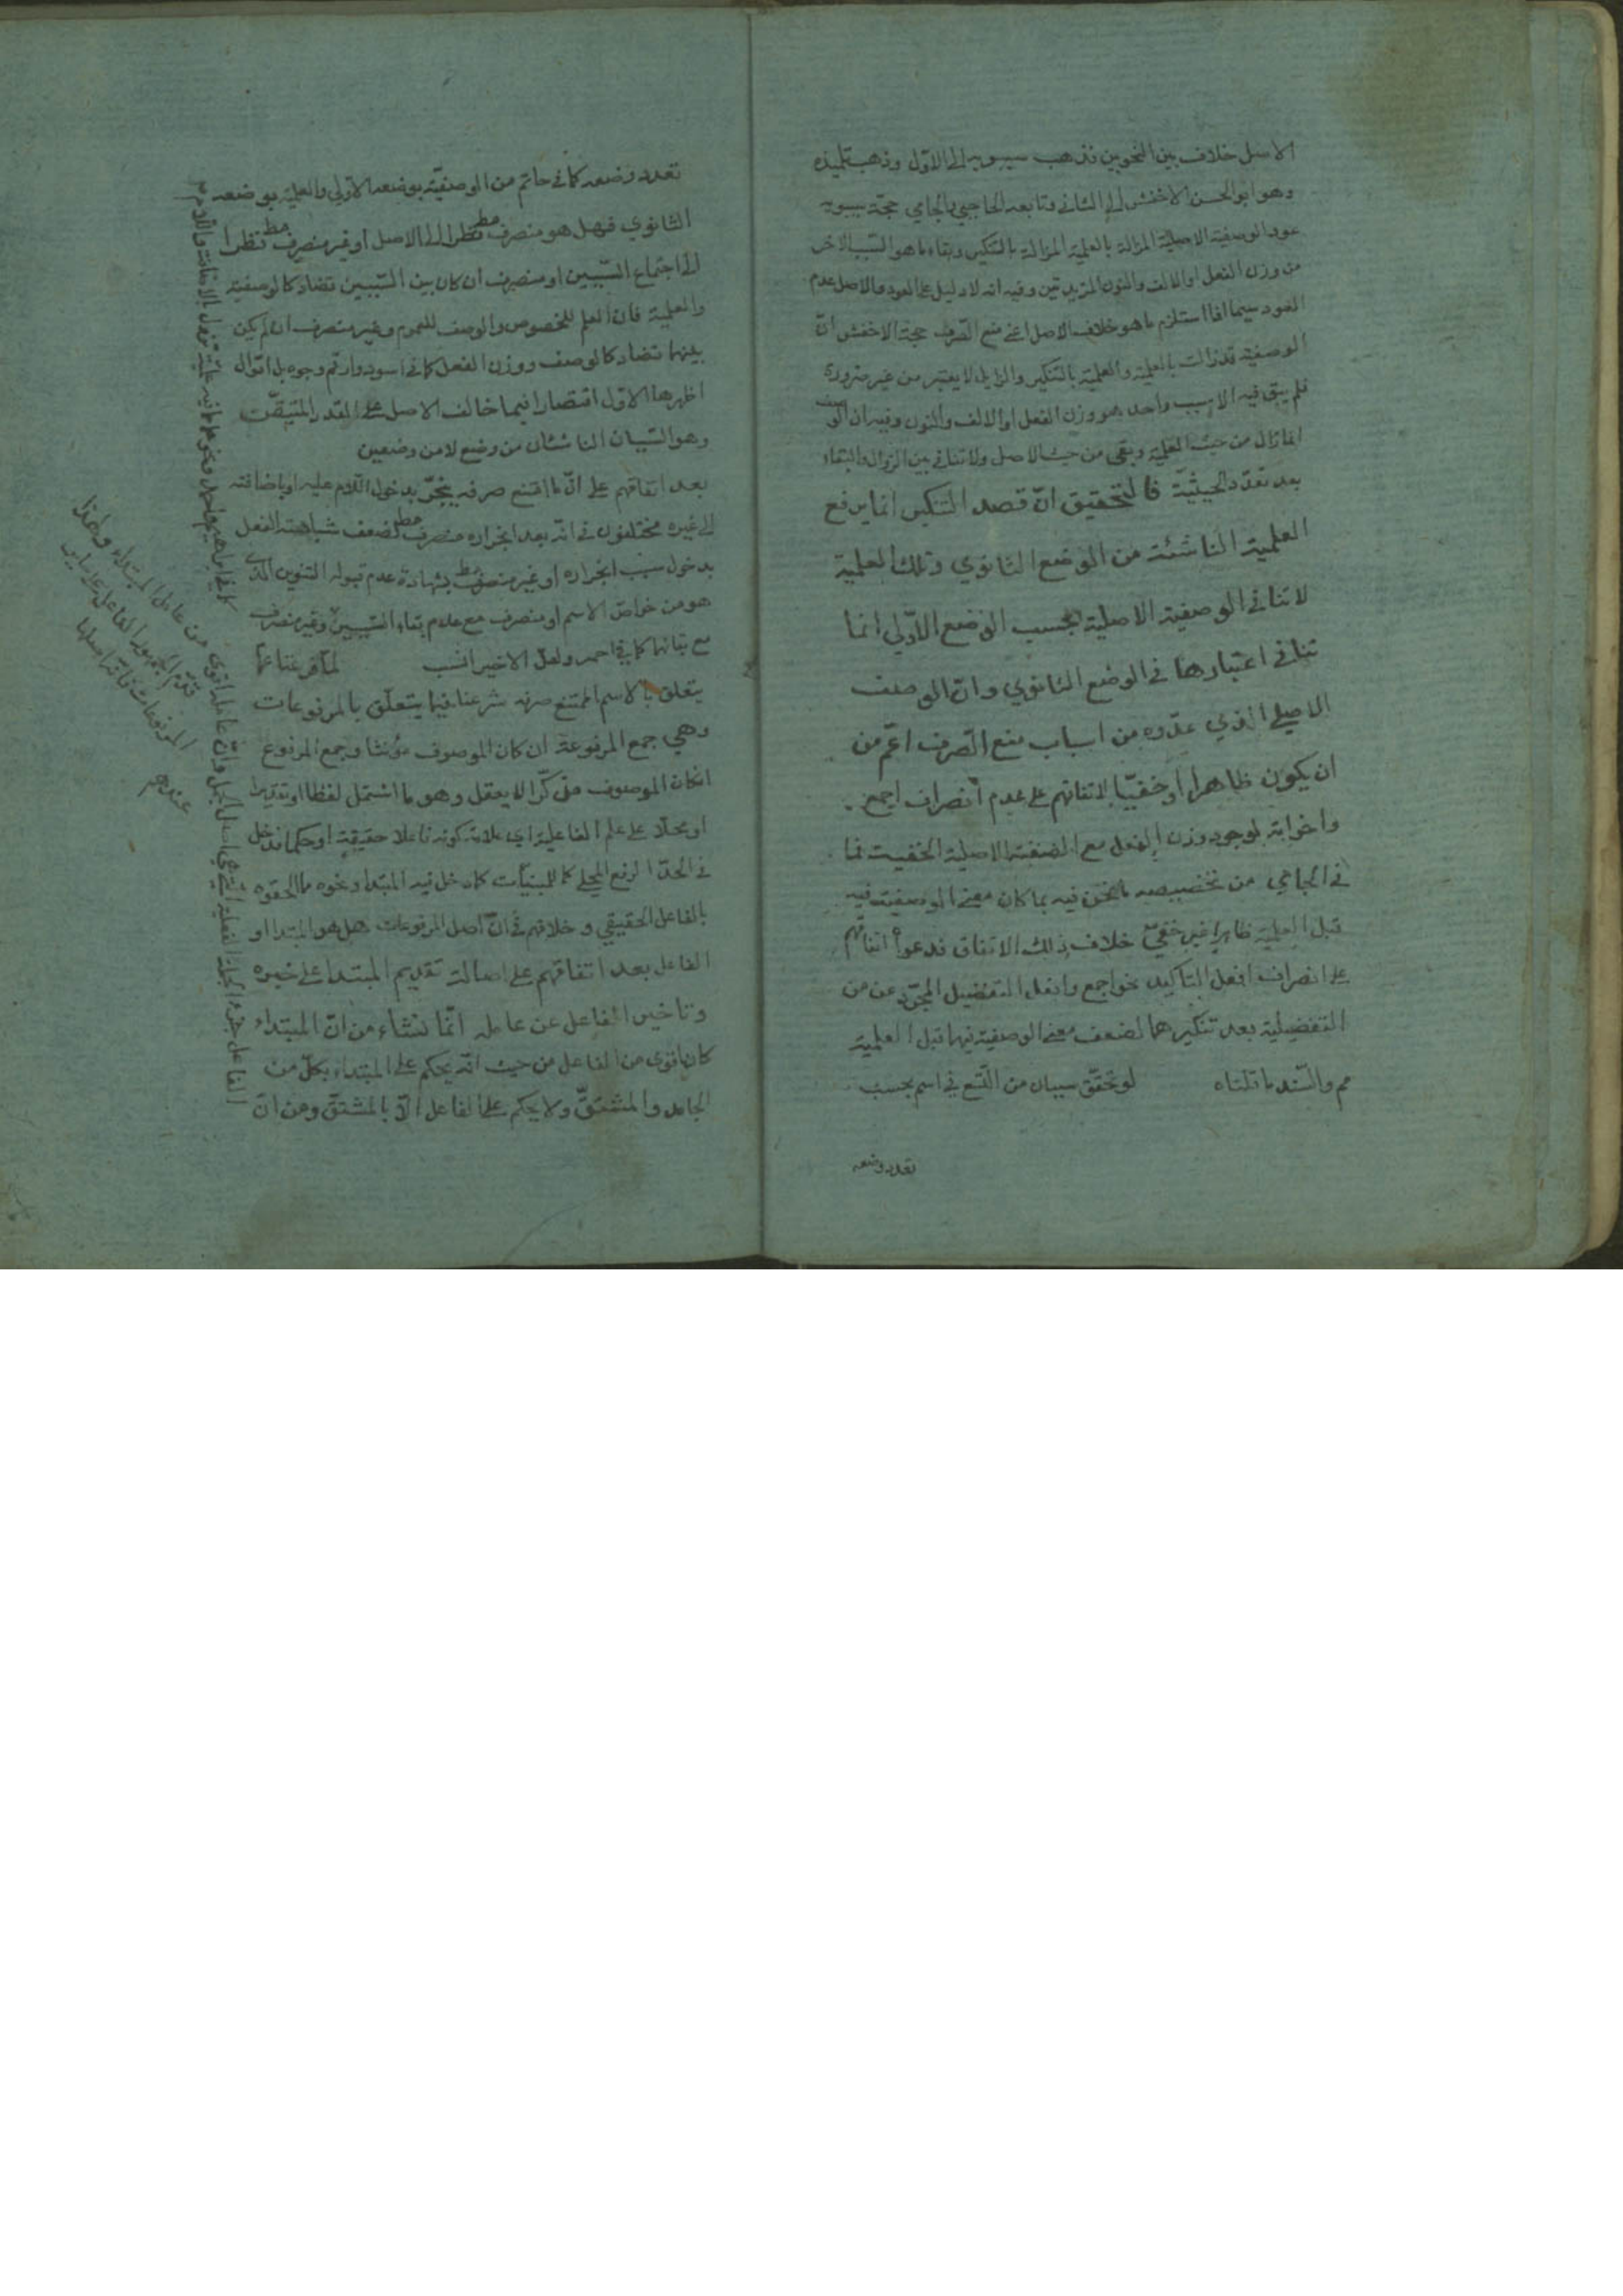 الاصل خلاف بين النحويين فذهب سيبويه الى الاول وذهب تلميذه
وهو ابو الحسن الاخفش الى الثاني وتابعه الحاجبي والجامي حجة سيبويه
عود الوصفية الاصلية المزالة بالعلمية المزالة بالتنكير وبقاء ما هو السبب الاخر
من وزن الفعل او الالف والنون المزيدتين وفيه انه لا دليل على العود والاصل عدم
العود سيما اذا استلزم ما هو خلاف الاصل اعني منع الصرف حجة الاخفش انّ
الوصفية قد زالت بالعلمية والعلمية بالتنكير والزايل لا يعتبر من غير ضرورة
فلم يبق فيه الا سبب واحد هو وزن الفعل او الالف والنون وفيه ان الوصف
انما زال من حيث العلمية وبقى من حيث الاصل ولا تنافي بين الزوال والبقاء
بعد تعدّد الحيثيّة فالتحقيق انّ قصد التنكير انما يرفع
العلمية الناشئة من الوضع الثانوي وتلك العلمية
لا تنافي الوصفية الاصلية بحسب الوضع الاوّلي انما
تنافي اعتبارها في الوضع الثانوي وانّ الوصف
الاصلي الذي عدّوه من اسباب منع الصرف اعّم من
ان يكون ظاهرا او خفيّا لاتفاقهم على عدم انصراف اجمع
واخواته لوجود وزن الفعل مع الصفة الاصلية الخفيت فما
في الجامي من تخصيصه ما نحن فيه بما كان معنى الوصفية فيه
قبل العلمية ظاهرا غير خفيّ خلاف ذلك الاتفاق فدعوا اتفاقهم
على انصراف افعل التاكيد نحو اجمع وافعل التفضيل المجرّد عن من
التفضيلية بعد تنكيرهما لضعف معنى الوصفية فيهما قبل العلمية
مم والسّند ما قلناه لو تحقّق سببان من التّسع في اسم بحسب
تعدد وضعه
تعدد وضعه كما في حاتم من الوصفيّة بوضعه الاوّلي والعلمية بوضعه
الثانوي فهل هو منصرف مط نظرا الى الاصل او غير منصرف مط نظرا
الى اجتماع السّببين او منصرف ان كان بين السّببين تضاد كالوصفية
والعلمية فان العلم للخصوص والوصف للعموم وغير منصرف ان لم يكن
بينهما تضاد كالوصف ووزن الفعل كما في اسود وارقم وجوه بل اقوال
اظهرها الاوّل اقتصارا فيما خالف الاصل على القدر المتيقّن
وهو السّببان الناشئان من وضع لا من وضعين
بعد اتفاقهم على انّ ما امتنع صرفه ينجّر بدخول اللّام عليه او باضافته
الى غيره مختلفون في انّه بعد انجراره منصرف مط لضعف شباهته الفعل
بدخول سبب انجراره او غير منصرف مط بشهادة عدم قبوله التنوين الذي
هو من خواصّ الاسم او منصرف مع عدم بقاء السّببين وغير منصرف
مع بقائهما كما في احمر ولعلّ الاخير انسب لما فرغنا عما
يتعلق بالاسم الممتنع صرفه شرعنا فيما يتعلّق بالمرفوعات
وهي جمع المرفوعة ان كان الموصوف مؤنثا وجمع المرفوع
ان كان الموصوف مذكّرا لا يعقل وهو ما اشتمل لفظا او تقديرا
او محلّا على علم الفاعلية اي علامة كونه فاعلا حقيقة او حكما فدخل
في الحدّ الرفع المحلي كما للمبنيّات كما دخل فيه المبتدا ونحوه مما الحقوه
بالفاعل الحقيقي و خلافهم في انّ اصل المرفوعات هل هو المبتدا او
الفاعل بعد اتفاقهم على اصالة تقديم المبتدا على خبره
وتاخير الفاعل عن عامله انّما نشاء من انّ المبتداء
كان اقوى من الفاعل من حيث انّه يحكم على المبتداء بكلّ من
الجامد والمشتقّ ولا يحكم على الفاعل الّا بالمشتقّ ومن انّ
الفاعل جزء الجملة الفعلية التي هي اصل الجمل وانّ عامله اقوى من عامل المبتداء ولهذا
قدّم الجمهور الفاعل على ساير
المرفوعات فانّه اصلها
عندهم